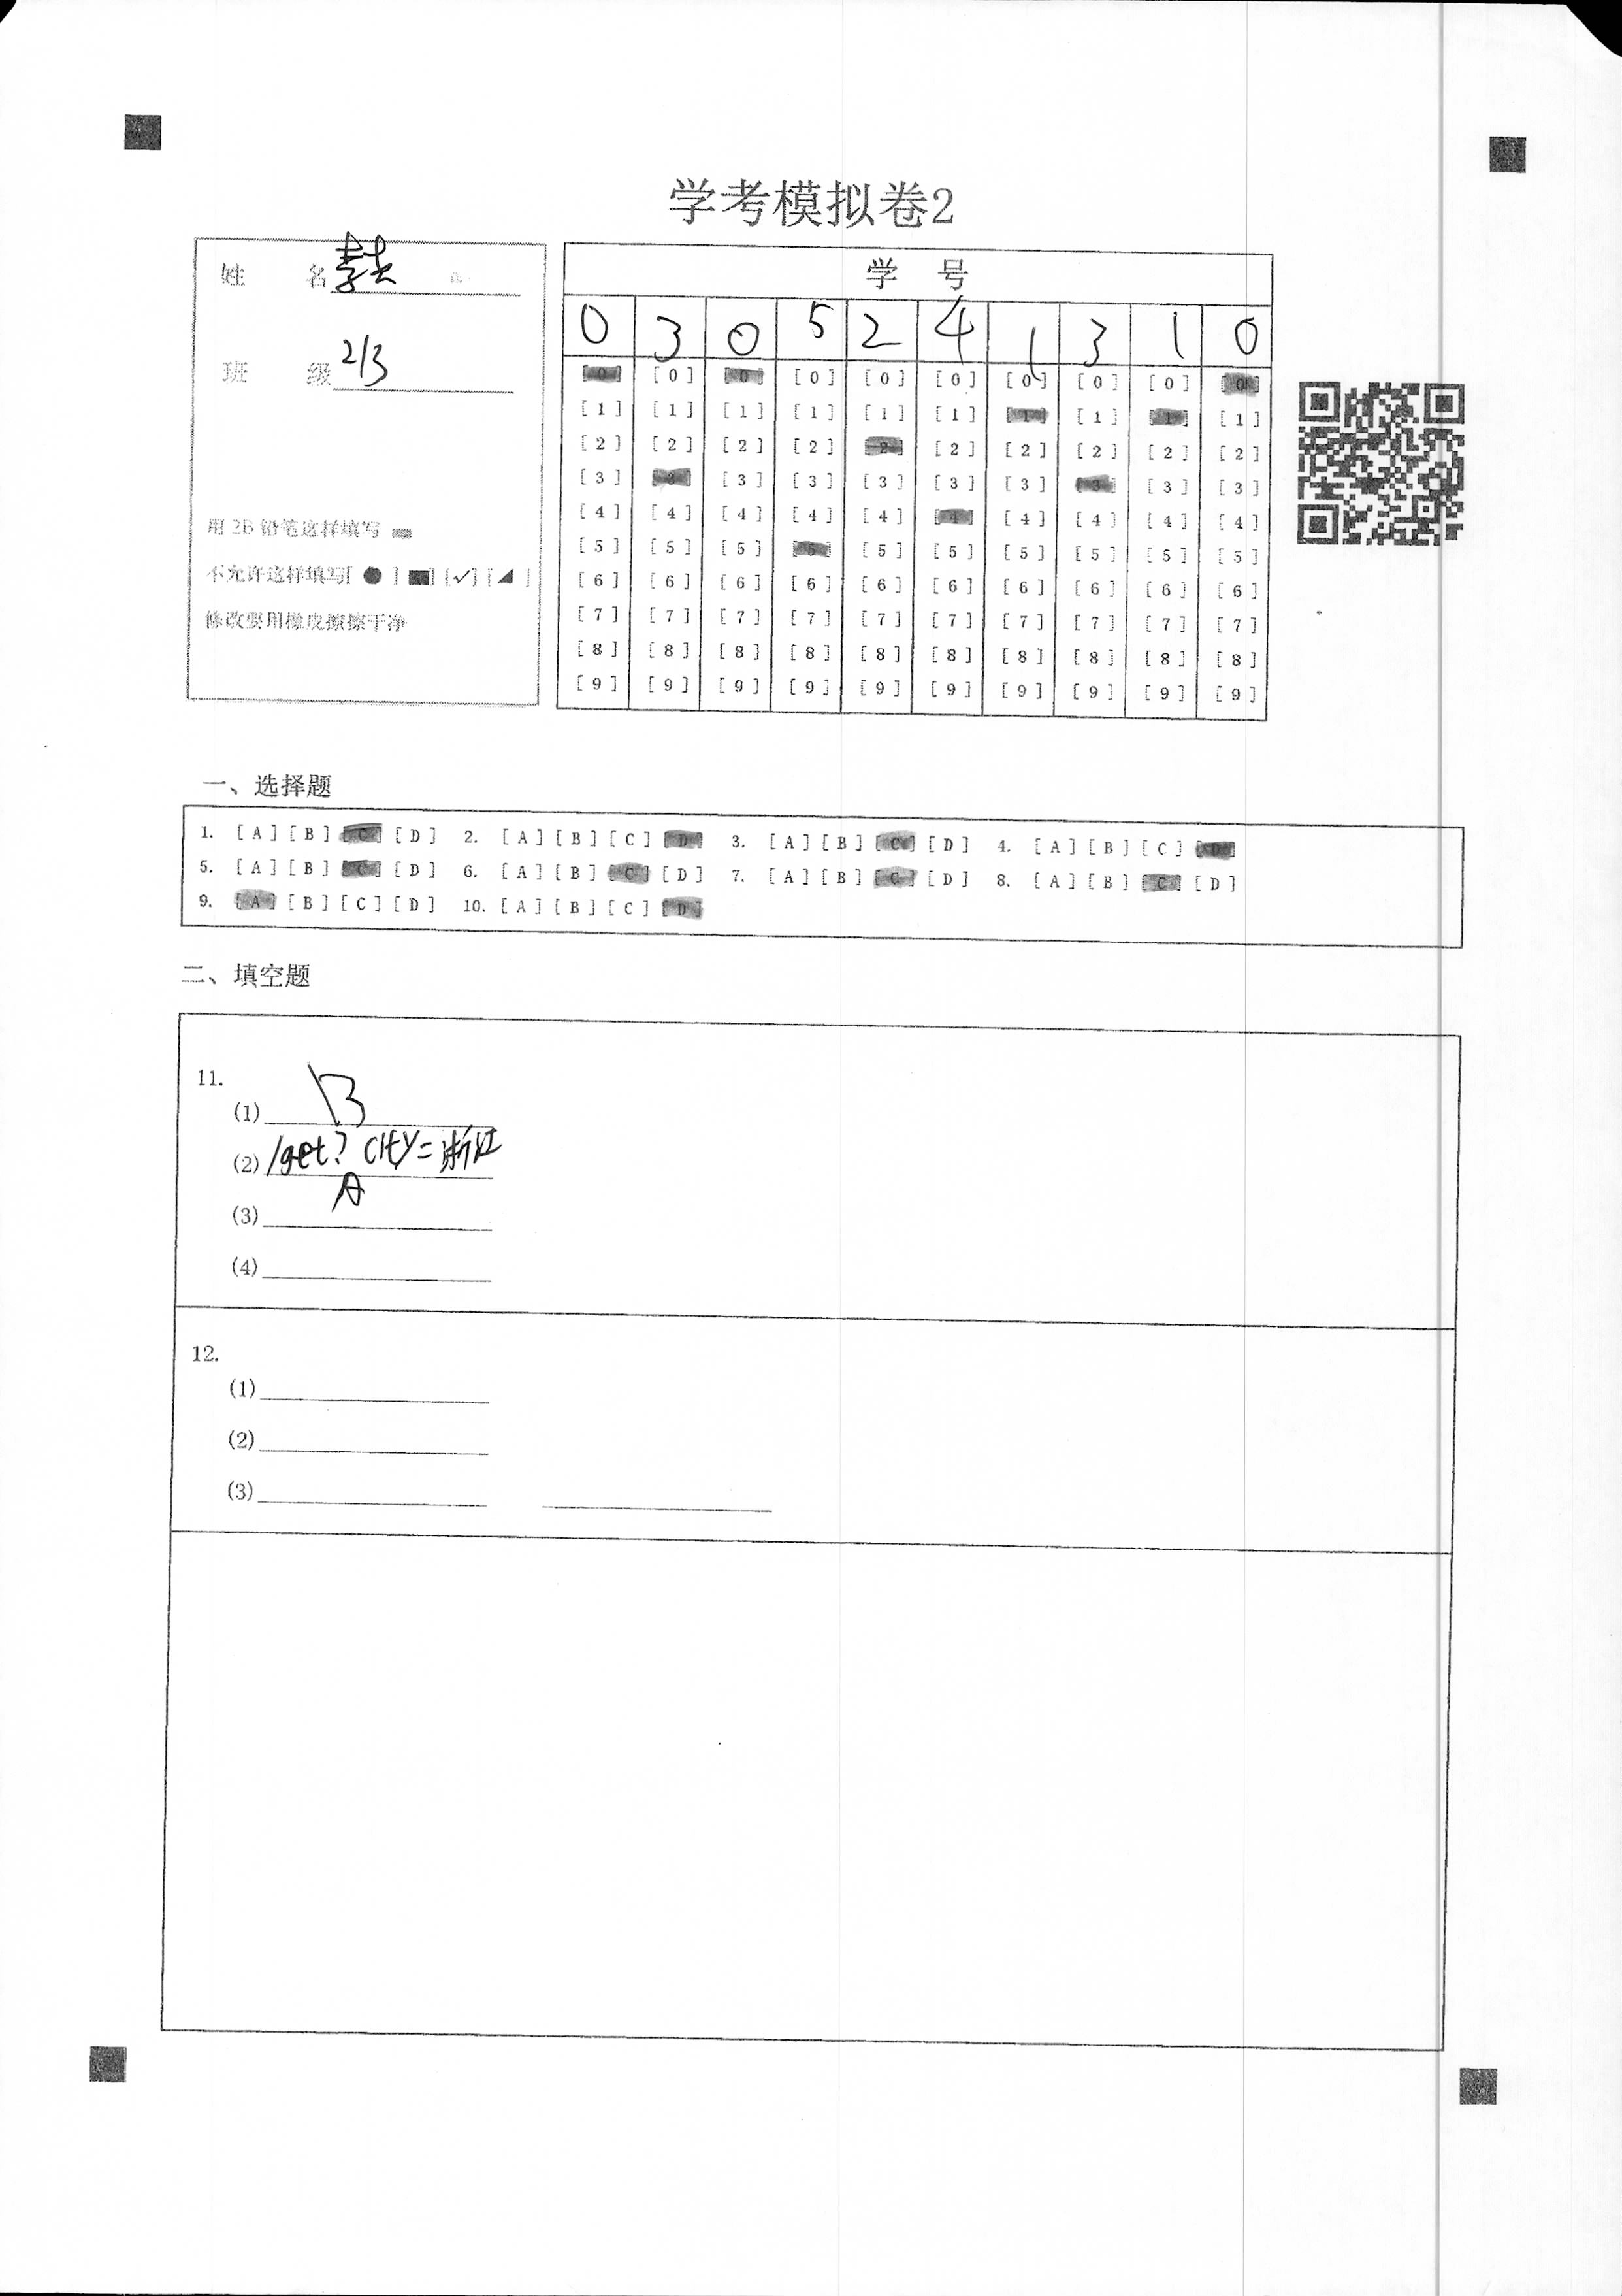 学考模拟卷2
姓 名
班 级 213
用 2B 铅笔这样填写
不允许这样填写[ ● ] [■] [✓] [◢ ]
修改要用橡皮擦擦干净
学 号
0 3 0 5 2 4 1 3 1 0
[0] [0] [0] [0] [0] [0] [0] [0] [0] [0]
[1] [1] [1] [1] [1] [1] [1] [1] [1] [1]
[2] [2] [2] [2] [2] [2] [2] [2] [2] [2]
[3] [3] [3] [3] [3] [3] [3] [3] [3] [3]
[4] [4] [4] [4] [4] [4] [4] [4] [4] [4]
[5] [5] [5] [5] [5] [5] [5] [5] [5] [5]
[6] [6] [6] [6] [6] [6] [6] [6] [6] [6]
[7] [7] [7] [7] [7] [7] [7] [7] [7] [7]
[8] [8] [8] [8] [8] [8] [8] [8] [8] [8]
[9] [9] [9] [9] [9] [9] [9] [9] [9] [9]
一、选择题
1. [A] [B] [C] [D] 2. [A] [B] [C] [D] 3. [A] [B] [C] [D] 4. [A] [B] [C] [D]
5. [A] [B] [C] [D] 6. [A] [B] [C] [D] 7. [A] [B] [C] [D] 8. [A] [B] [C] [D]
9. [A] [B] [C] [D] 10. [A] [B] [C] [D]
二、填空题
11.
(1) B
(2) /get? city=浙江
(3) A
(4)
12.
(1)
(2)
(3)